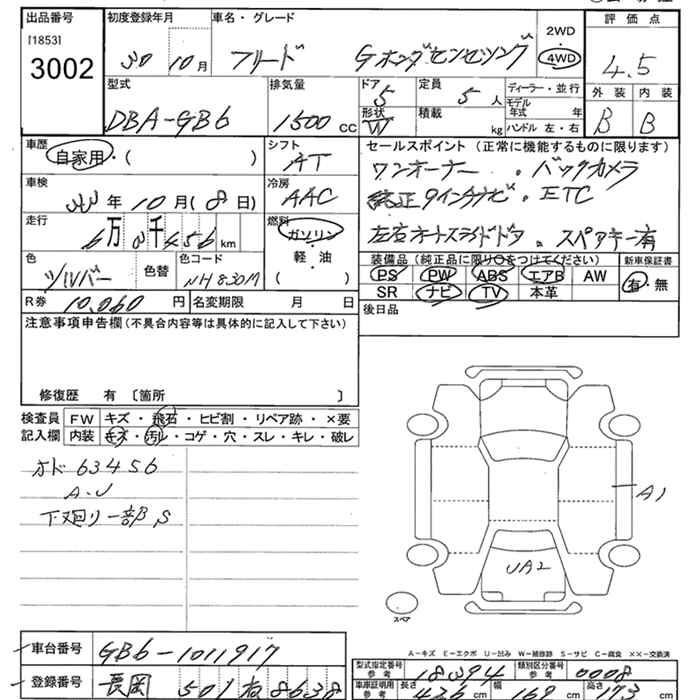 出品番号 初度登録年月 車名・グレード 評価点
[1853]
3002
30 10月 フリード Gホンダセンシング 2WD 4WD 4.5
外装 内装
B B
型式 排気量 ドア 定員 ディーラー・並行
DBA-GB6 1500cc 5 5人 モデル年式 年
形状 積載 kg ハンドル 左・右
W
車歴 シフト セールスポイント (正常に機能するものに限ります)
自家用・( ) AT ワンオーナー ・ バックカメラ
車検 冷房 純正9インチナビ ・ ETC
年 10月(8日) AAC
走行 燃料 左右オートスライドドア ・ スペアキー有
6万 3千456km ガソリン
軽・油
( )
色 色替 色コード 装備品(純正品に限り○をつけてください) 新車保証書
シルバー NH830M PS PW ABS エアB AW 有・無
SR ナビ TV 本革
R券 10,060円 名変期限 月 日 後日品
注意事項申告欄(不具合内容等は具体的に記入して下さい)
修復歴 有〔箇所 〕
検査員 FW キズ・飛石・ヒビ割・リペア跡・×要
記入欄 内装 キズ・汚レ・コゲ・穴・スレ・キレ・破レ
オド 63456
A.U
下廻り一部S
A1
UA2
スペア
A-キズ E-エクボ U-凹み W-補修跡 S-サビ C-腐食 ××-交換済
車台番号 GB6-1011917
型式指定番号 参考 18394 類別区分番号 参考 0008
登録番号 長岡 501 ね 8638
車庫証明用 参考 長さ 426cm 幅 169cm 高さ 173cm